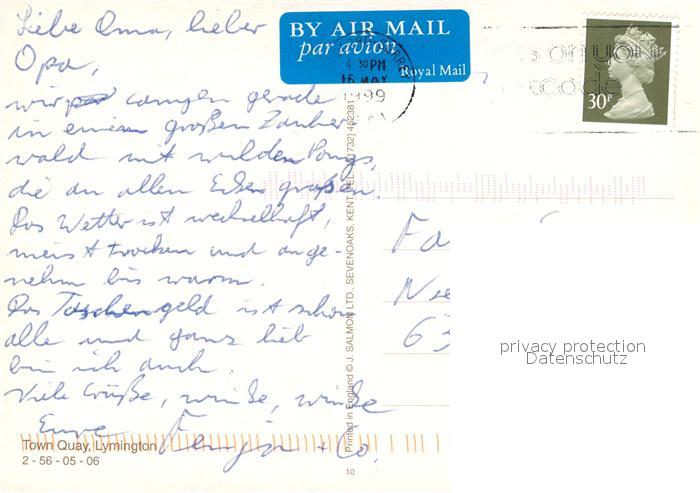 Liebe Oma, lieber
Opa,
wir campen gerade
in einem großen Zauber
wald mit wilden Ponys,
die an allen Ecken grasen.
Das Wetter ist wechselhaft,
meist trocken und ange-
nehm bis warm.
Das Taschengeld ist schon
alle und ganz lieb
bin ich auch.
Viele Grüße, winke, winke
Eure
+ Co.
Town Quay, Lymington
2 - 56 - 05 - 06
BY AIR MAIL
par avion
Royal Mail
4 30 PM
16 MAY
1999
30P
Printed in England © J. SALMON LTD., SEVENOAKS, KENT. TEL: (01732) 452381
10
Fa
Nie
63
privacy protection
Datenschutz